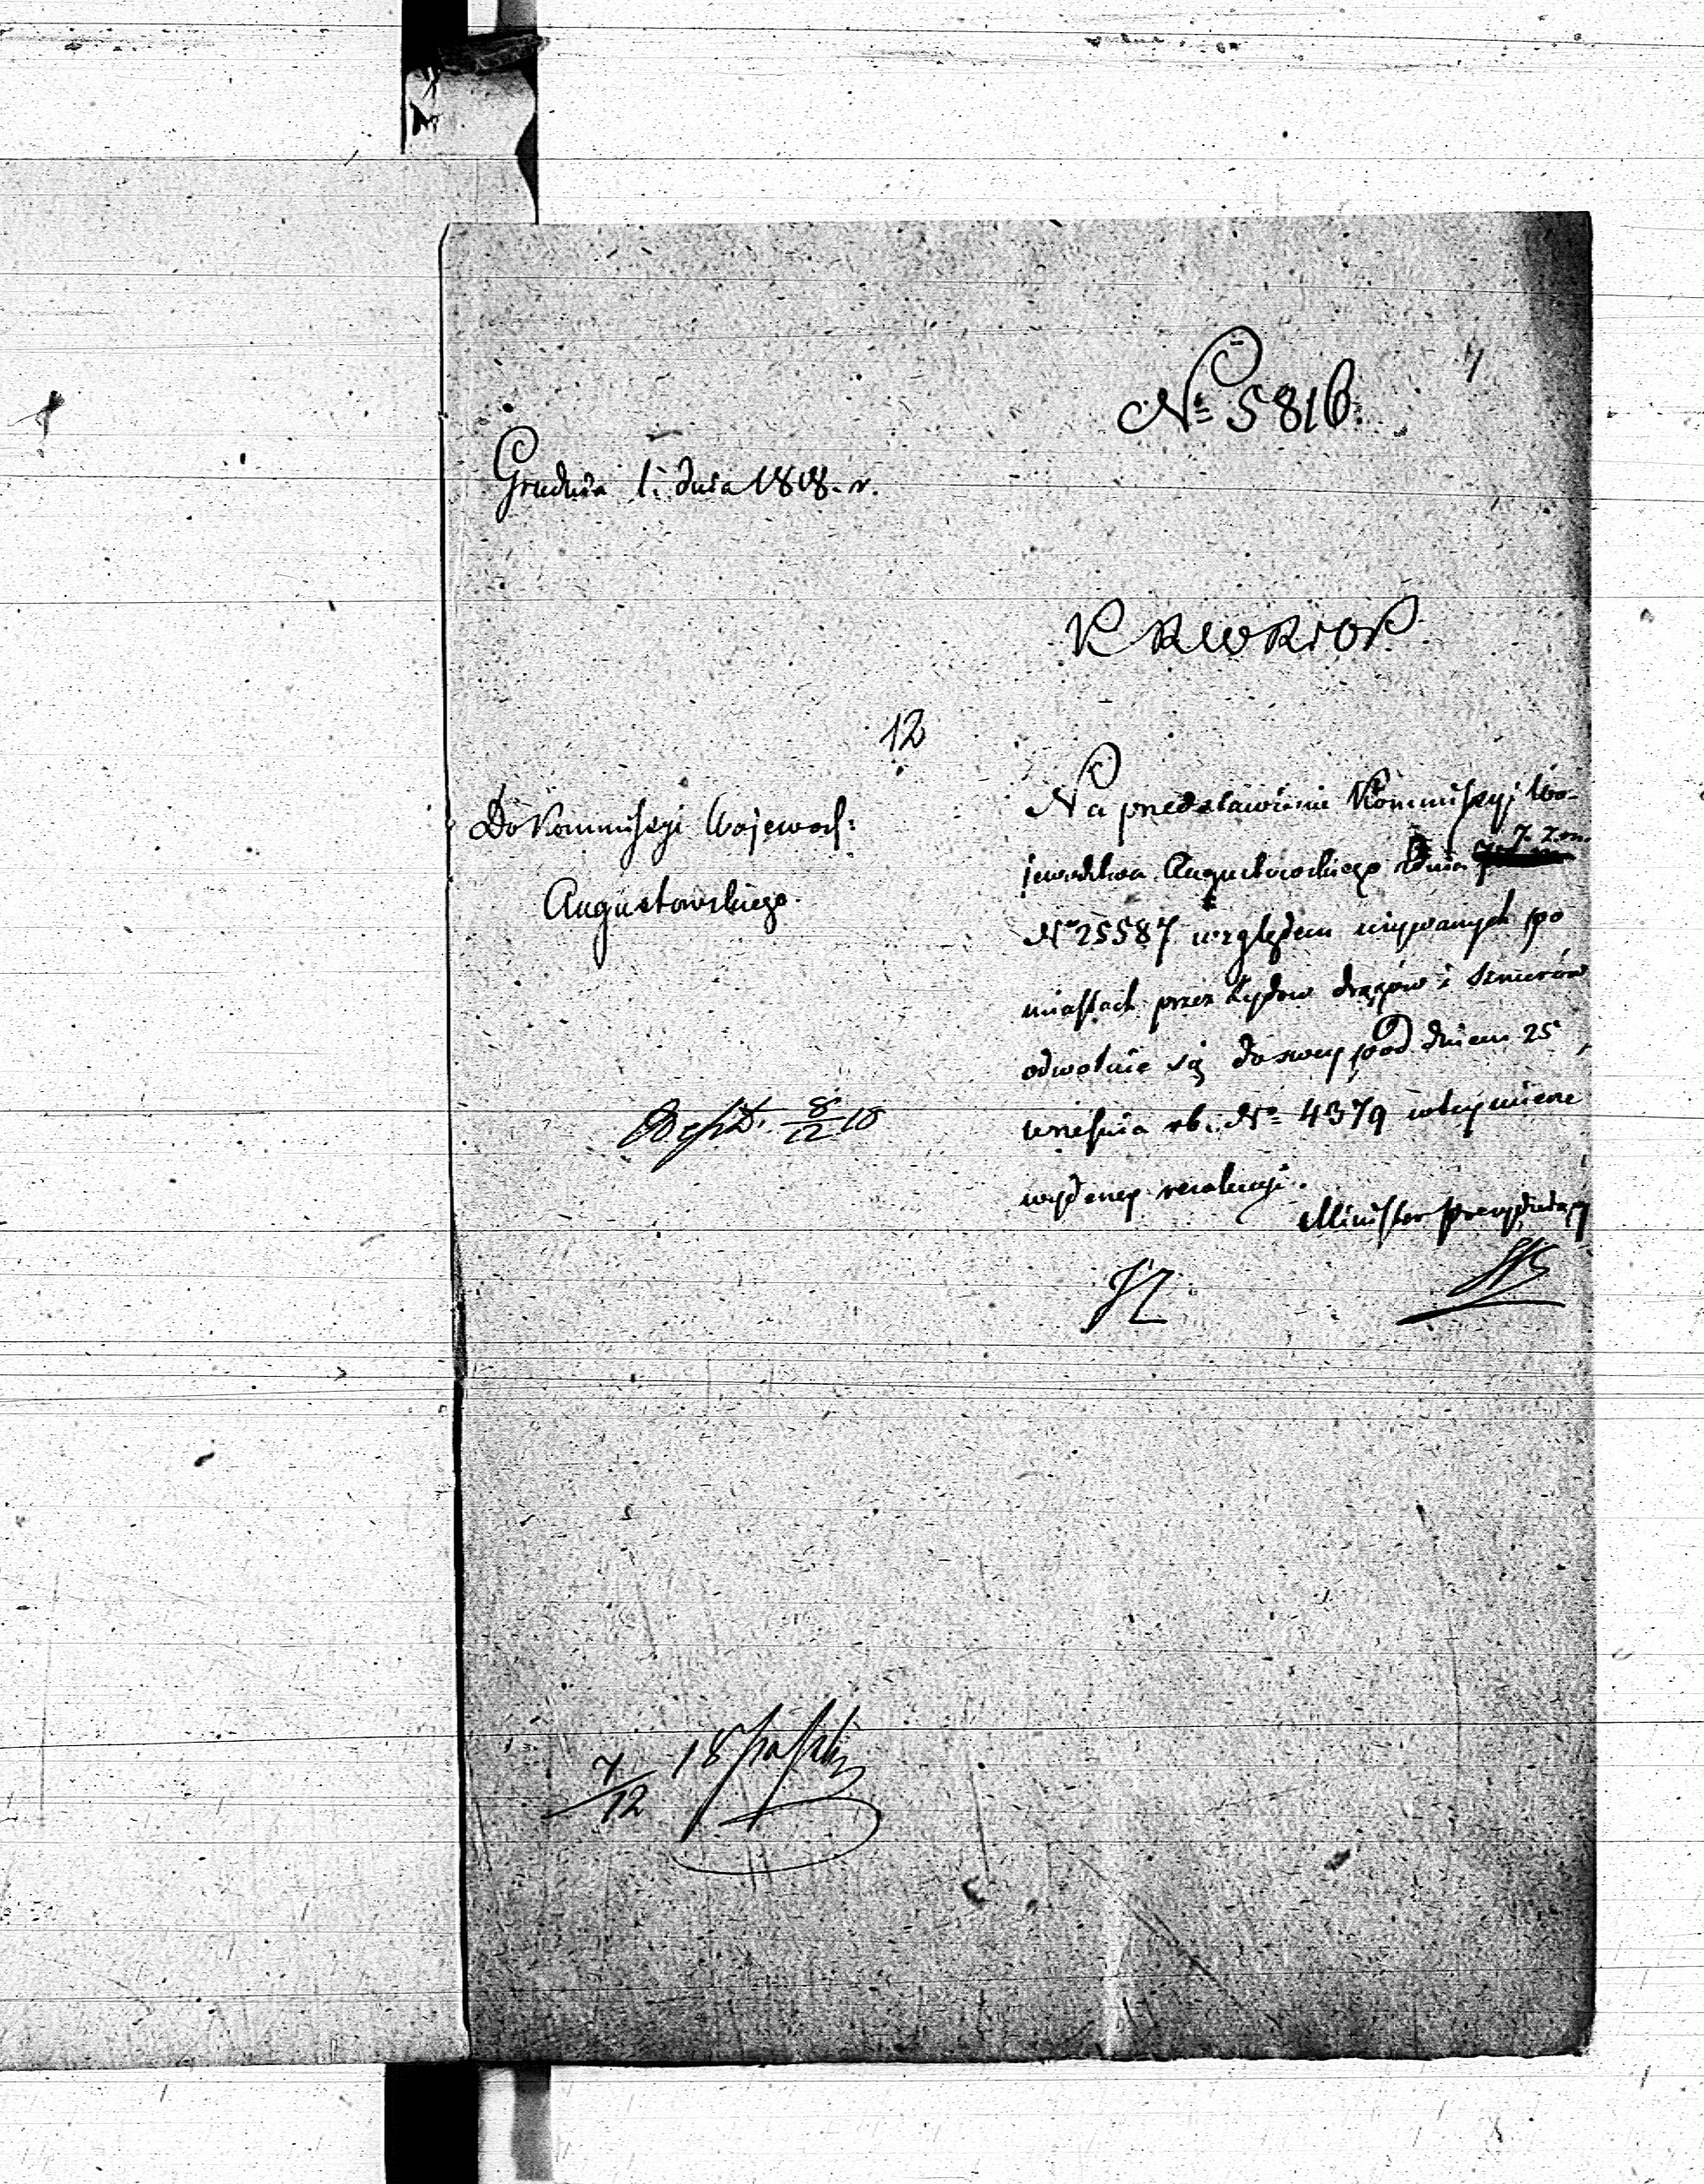 7
№ 5816.
Grudnia 1. dnia 1818. r.
K R W R i O P.
12
Do Kommissyi Wojewod:
Augustowskiego.
Na przedstawienie Kommissyi Wo-
jewództwa Augustowskiego z dnia 7. z. m.
№ 25587 względem używanych po
miastach przez Żydów drągów i sznurów
odwołuie się do swey pod dniem 25
września rb. № 4379 w tey mierze
wydaney rezolucyi.
Minister Prezyduiący
Exp. 8/12 18
7/12 18